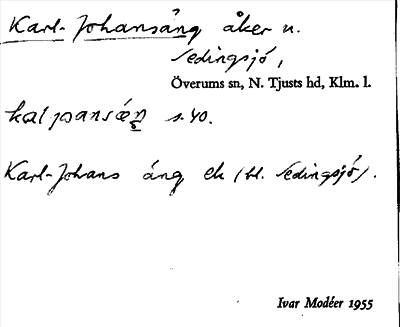 Karl-Johansäng åker u.
Sedingsjö,
Överums sn, N. Tjusts hd, Klm. l.
s.40.
Karl-Johans äng ek (bl. Sedingsjö).
Ivar Modéer 1955